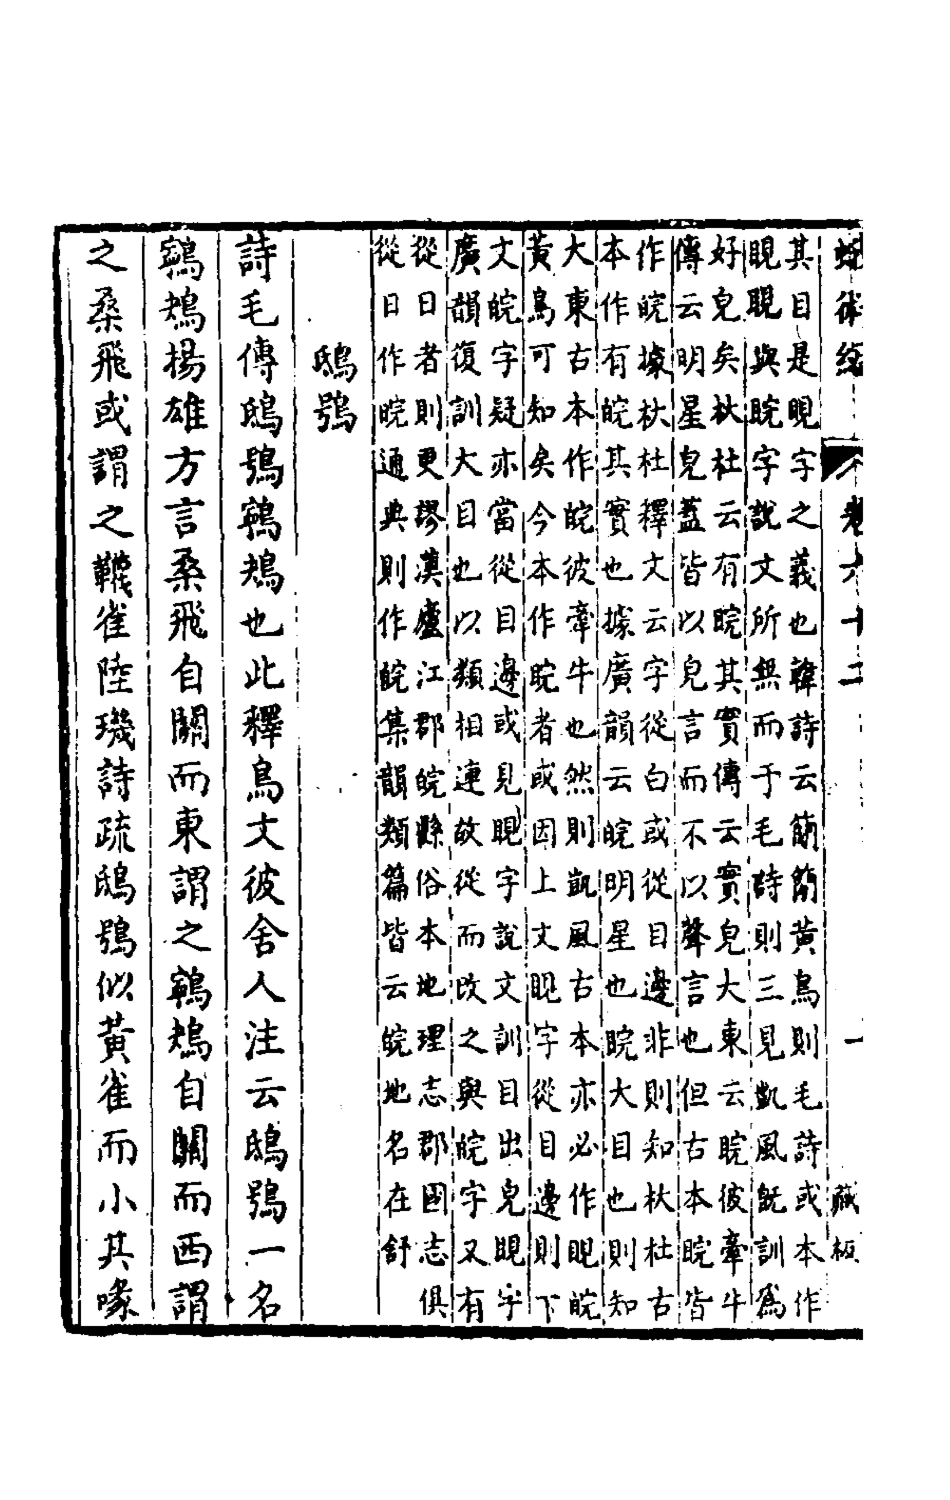 蛾術編 卷六十二 一 藏板
其目是睍字之義也韓詩云簡簡黃鳥則毛詩或本作
睍睍與睆字說文所無而于毛詩則三見凱風既訓為
好皃矣杕杜云有睆其實傳云實皃大東云睆彼牽牛
傳云明星皃蓋皆以皃言而不以聲言也但古本睆皆
作皖據杕杜釋文云字從白或從目邊非則知杕杜古
本作有皖其實也據廣韻云皖明星也睆大目也則知
大東古本作皖彼牽牛也然則凱風古本亦必作睍皖
黃鳥可知矣今本作睆者或因上文睍字從目邊則下
文皖字疑亦當從目邊或見睍字說文訓目出皃睍字
廣韻復訓大目也以類相連故從而改之與皖字又有
從日者則更謬漢廬江郡皖縣俗本地理志郡國志俱
從日作晥通典則作皖集韻類篇皆云皖地名在舒
鴟鴞
詩毛傳鴟鴞鸋鴂也此釋鳥文彼舍人注云鴟鴞一名
鸋鴂揚雄方言桑飛自關而東謂之鸋鴂自關而西謂
之桑飛或謂之韈雀陸璣詩疏鴟鴞似黃雀而小其喙